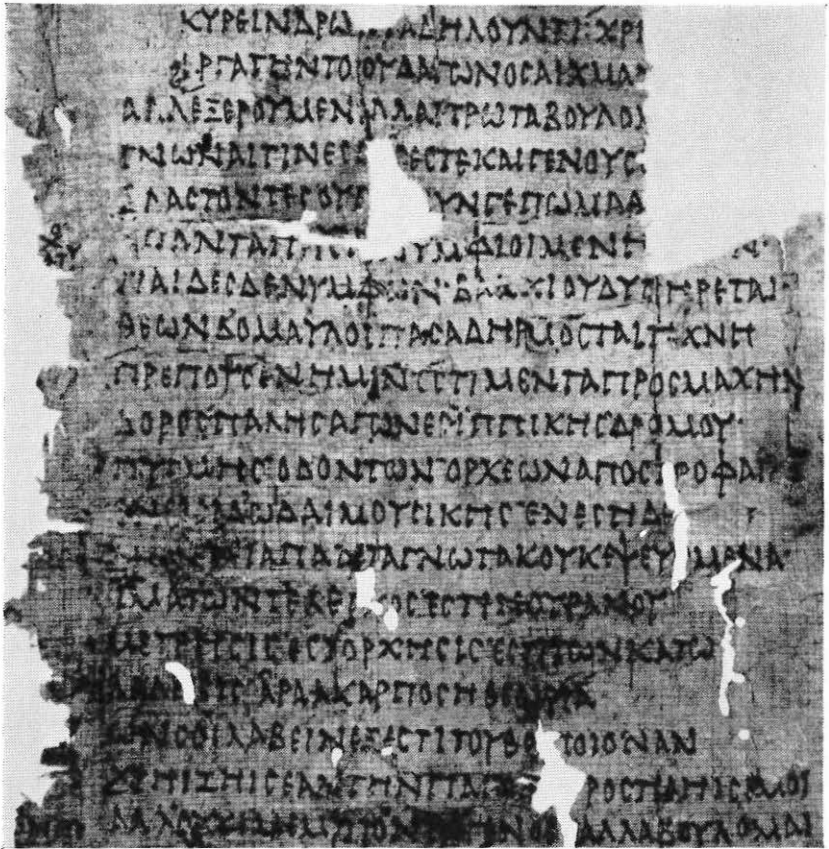 ΚΥΡΕΙΝΔΡΩ ΑΔΗΛΟΥΝΤΙ ΧΡΙ
ΟΥΔΑ ΤΩΝΟΣΑΙΧΜΑ
ΑΛΛΕΞΕΡΟΥΜΕΝΑΛΛΑΠΡΩΤΑΒΟΥΛΟ
ΓΝΩΝΑΙΤΙΝΕΣ ΕΣΤΕΚΑΙΓΕΝΟΥΣ
ΒΛΑΣΤΟΝΤΕΣΟΥΓ ΥΝΓΕΠΩΜΑ
ΧΟ ΑΠΑΝΤΑΠ ΝΥΜΦΙΟΙΜΕΝ
ΠΑΙΔΕΣΔΕΝΥΜΦΩΝ ΒΑΚΧΙΟΥΔΥΠΗΡΕΤΑΙ
ΘΕΩΝΔΟΜΑΥΛΟΙΠΑΣΑΔΗΡΜΟΣΤΑΙΤΕΧΝΗ
ΠΡΕΠΟΥΣΕΝΗΜΙΝΕΣΤΙΜΕΝΤΑΠΡΟΣΜΑΧΗΝ
ΔΟΡΟΣΠΑΛΗΣΑΓΩΝΕΣΙΠΠΙΚΗΣΔΡΟΜΟΥ
ΠΥΓΜΗΣΟΔΟΝΤΩΝΟΡΧΕΩΝΑΠΟΣΤΡΟΦΑΙ
ΕΝΕΙΣΙΔΩΔΑΙΜΟΥΣΙΚΗΣΕΝΕΣΤΙΔΕ
ΜΑΝΤΕΙΑΠΑΝΤΑΓΝΩΤΑΚΟΥΚΕΨΕΥΣΜΕΝΑ
ΙΑΜΑΤΩΝΤΕΛΕΓΧΟΣΕΣΤΙΝΟΥΡΑΝΟΥ
ΜΕΤΡΗΣΙΣΕΣΤΟΡΧΗΣΙΣΕΣΤΙΤΩΝΚΑΤΩ
ΛΑΛΗΣΙΣΑΡΑΚΑΡΠΟΣΗΘΕΩΡΙΑ
ΩΝΣΟΙΛΑΒΕΙΝΕΞΕΣΤΙΤΟΥΘΟΠΟΙΟΝΑΝ
ΧΡΗΙΖΗΙΣΕΑΝΤΗΝΠΑΙΔΑΠΡΟΣΤΙΘΗΙΣΕΜΟΙ
ΑΛΛΟΥΧΙΜΕΜΠΤΟΝΤΟΓΕΝΟΣΑΛΛΑΒΟΥΛΟΜΑΙ